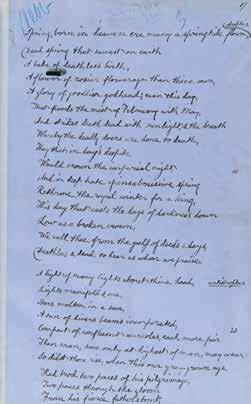 4/
Spring, born in heaven ere many a springtide flown,
Dead spring that sawest on earth
A babe of deathless birth,
A flower of rosier flowerage than thine own,
A glory of goodlier godhead; even this day,
That floods the mist of February with May,
And strikes death dead with sunlight, & the breath
Whereby the deadly doers are done to death,
They that in day's despite
Would crown the imperial night,
10
And in deep hate of insubmissive spring
Rethrone the royal winter for a king,
This day that casts the days of darkness down
Low as a broken crown,
We call thee from the gulf of deeds & days,
Deathless & dead, to hear us whom we praise.
antistrophe
A light of many lights about thine head,
Lights manifold & one,
Stars molten in a sun,
A sun of divers beams incorporated,
20
Compact of confluent aureoles, each more fair
Than man, save only at highest of man, may wear
So didst thou rise, when this our grey-grown age
Had trod two paces of his pilgrimage,
Two paces through the gloom
From his fierce father's tomb,